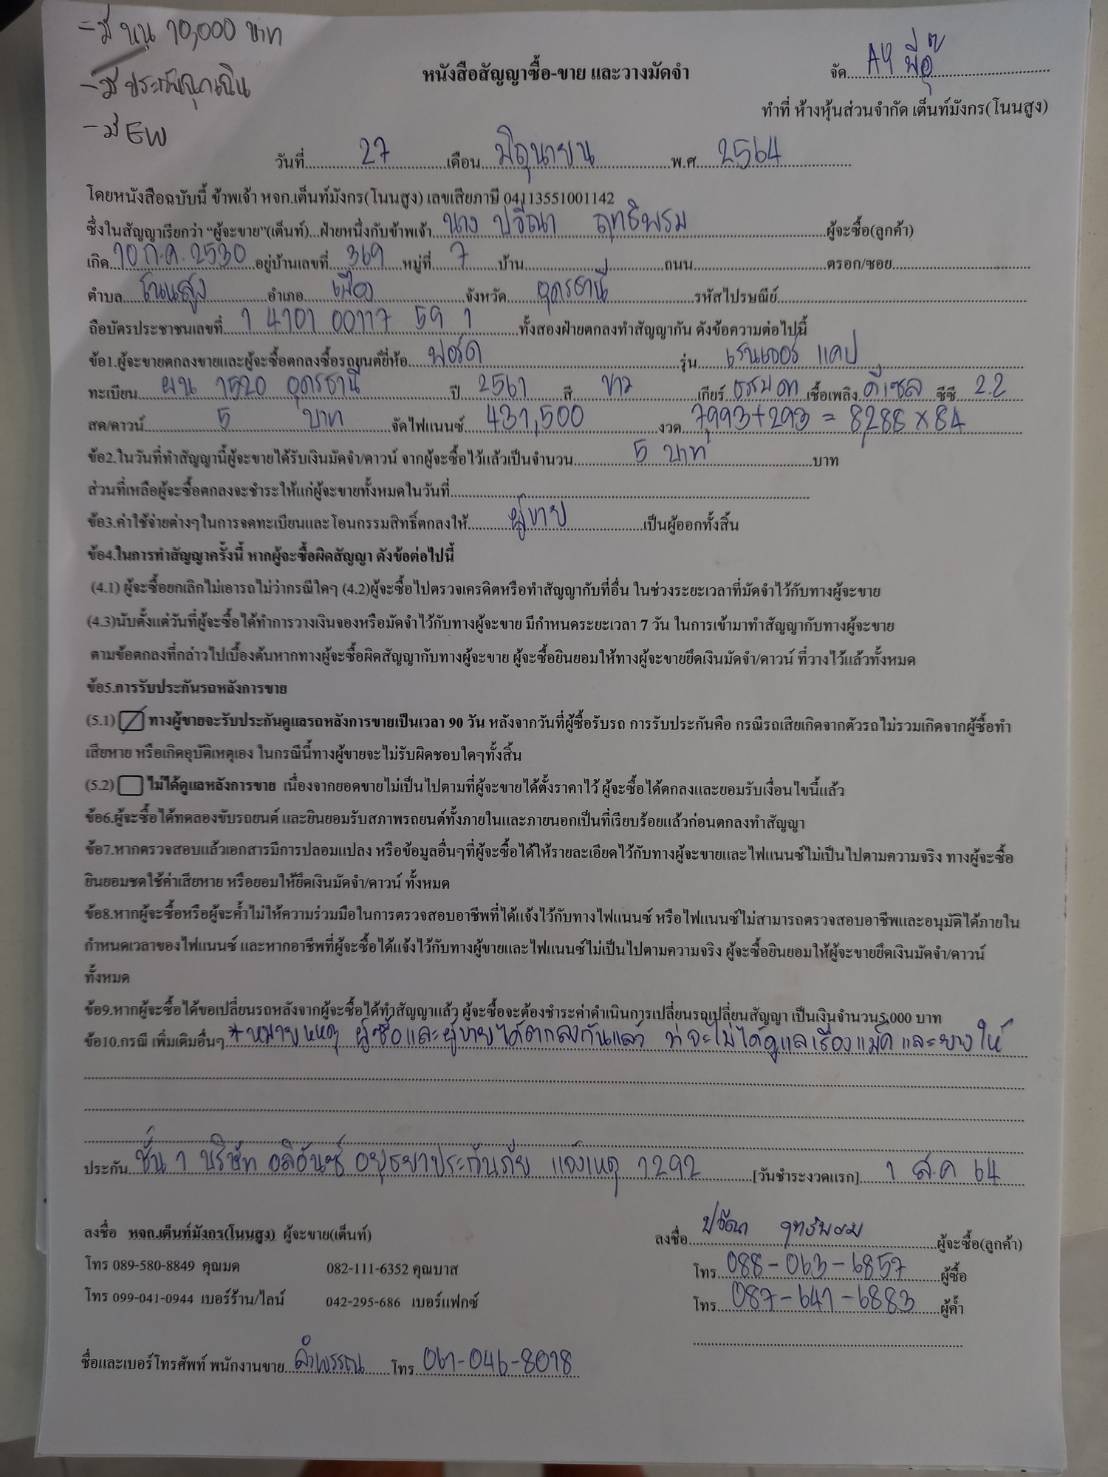 - มี ทุน 10,000 บาท
- มี ประกันฉุกเฉิน
- มี EW
หนังสือสัญญาซื้อ-ขาย และวางมัดจำ
จัด AY พี่อุ๊
ทำที่ ห้างหุ้นส่วนจำกัด เต็นท์มังกร(โนนสูง)
วันที่ 27 เดือน มิถุนายน พ.ศ. 2564
โดยหนังสือฉบับนี้ ข้าพเจ้า หจก.เต็นท์มังกร(โนนสูง) เลขเสียภาษี 04113551001142
ซึ่งในสัญญาเรียกว่า "ผู้จะขาย"(เต็นท์)...ฝ่ายหนึ่งกับข้าพเจ้า นาง ปวีณา ฤทธิพรม ผู้จะซื้อ(ลูกค้า)
เกิด 10 ก.ค. 2530 อยู่บ้านเลขที่ 369 หมู่ที่ 7 บ้าน ถนน ตรอก/ซอย
ตำบล โนนสูง อำเภอ เมือง จังหวัด อุดรธานี รหัสไปรษณีย์
ถือบัตรประชาชนเลขที่ 1 4101 00117 59 1 ทั้งสองฝ่ายตกลงทำสัญญากัน ดังข้อความต่อไปนี้
ข้อ1.ผู้จะขายตกลงขายและผู้จะซื้อตกลงซื้อรถยนต์ยี่ห้อ ฟอร์ด รุ่น เรนเจอร์ แคป
ทะเบียน ผน 1520 อุดรธานี ปี 2561 สี ขาว เกียร์ ธรรมดา เชื้อเพลิง ดีเซล ซีซี 2.2
สด/ดาวน์ 5 บาท จัดไฟแนนซ์ 431,500 งวด 7,993+293 = 8,288 x 84
ข้อ2.ในวันที่ทำสัญญานี้ผู้จะขายได้รับเงินมัดจำ/ดาวน์ จากผู้จะซื้อไว้แล้วเป็นจำนวน 5 บาท บาท
ส่วนที่เหลือผู้จะซื้อตกลงจะชำระให้แก่ผู้จะขายทั้งหมดในวันที่
ข้อ3.ค่าใช้จ่ายต่างๆในการจดทะเบียนและโอนกรรมสิทธิ์ตกลงให้ ผู้ขาย เป็นผู้ออกทั้งสิ้น
ข้อ4.ในการทำสัญญาครั้งนี้ หากผู้จะซื้อผิดสัญญา ดังข้อต่อไปนี้
(4.1) ผู้จะซื้อยกเลิกไม่เอารถไม่ว่ากรณีใดๆ (4.2)ผู้จะซื้อไปตรวจเครดิตหรือทำสัญญากับที่อื่น ในช่วงระยะเวลาที่มัดจำไว้กับทางผู้จะขาย
(4.3)นับตั้งแต่วันที่ผู้จะซื้อได้ทำการวางเงินจองหรือมัดจำไว้กับทางผู้จะขาย มีกำหนดระยะเวลา 7 วัน ในการเข้ามาทำสัญญากับทางผู้จะขาย
ตามข้อตกลงที่กล่าวไปเบื้องต้นหากทางผู้จะซื้อผิดสัญญากับทางผู้จะขาย ผู้จะซื้อยินยอมให้ทางผู้จะขายยึดเงินมัดจำ/ดาวน์ ที่วางไว้แล้วทั้งหมด
ข้อ5.การรับประกันรถหลังการขาย
(5.1) ทางผู้ขายจะรับประกันดูแลรถหลังการขายเป็นเวลา 90 วัน หลังจากวันที่ผู้ซื้อรับรถ การรับประกันคือ กรณีรถเสียเกิดจากตัวรถไม่รวมเกิดจากผู้ซื้อทำ
เสียหาย หรือเกิดอุบัติเหตุเอง ในกรณีนี้ทางผู้ขายจะไม่รับผิดชอบใดๆทั้งสิ้น
(5.2) ไม่ได้ดูแลหลังการขาย เนื่องจากยอดขายไม่เป็นไปตามที่ผู้จะขายได้ตั้งราคาไว้ ผู้จะซื้อได้ตกลงและยอมรับเงื่อนไขนี้แล้ว
ข้อ6.ผู้จะซื้อได้ทดลองขับรถยนต์ และยินยอมรับสภาพรถยนต์ทั้งภายในและภายนอกเป็นที่เรียบร้อยแล้วก่อนตกลงทำสัญญา
ข้อ7.หากตรวจสอบแล้วเอกสารมีการปลอมแปลง หรือข้อมูลอื่นๆที่ผู้จะซื้อได้ให้รายละเอียดไว้กับทางผู้จะขายและไฟแนนซ์ไม่เป็นไปตามความจริง ทางผู้จะซื้อ
ยินยอมชดใช้ค่าเสียหาย หรือยอมให้ยึดเงินมัดจำ/ดาวน์ ทั้งหมด
ข้อ8.หากผู้จะซื้อหรือผู้จะค้ำไม่ให้ความร่วมมือในการตรวจสอบอาชีพที่ได้แจ้งไว้กับทางไฟแนนซ์ หรือไฟแนนซ์ไม่สามารถตรวจสอบอาชีพและอนุมัติได้ภายใน
กำหนดเวลาของไฟแนนซ์ และหากอาชีพที่ผู้จะซื้อได้แจ้งไว้กับทางผู้ขายและไฟแนนซ์ไม่เป็นไปตามความจริง ผู้จะซื้อยินยอมให้ผู้จะขายยึดเงินมัดจำ/ดาวน์
ทั้งหมด
ข้อ9.หากผู้จะซื้อได้ขอเปลี่ยนรถหลังจากผู้จะซื้อได้ทำสัญญาแล้ว ผู้จะซื้อจะต้องชำระค่าดำเนินการเปลี่ยนรถเปลี่ยนสัญญา เป็นเงินจำนวน5,000 บาท
ข้อ10.กรณี เพิ่มเติมอื่นๆ * หมายเหตุ ผู้ซื้อและผู้ขายได้ตกลงกันแล้ว ว่าจะไม่ได้ดูแลเรื่องแม็ค และยางให้
ประกัน ชั้น 1 บริษัท อลิอันซ์ อยุธยาประกันภัย แจ้งเหตุ 1292 [วันชำระงวดแรก] 1 ส.ค 64
ลงชื่อ หจก.เต็นท์มังกร(โนนสูง) ผู้จะขาย(เต็นท์)
ลงชื่อ ปวีณา ฤทธิพรม ผู้จะซื้อ(ลูกค้า)
โทร 089-580-8849 คุณมด 082-111-6352 คุณบาส
โทร 088-063-6857 ผู้ซื้อ
โทร 099-041-0944 เบอร์ร้าน/ไลน์ 042-295-686 เบอร์แฟกซ์
โทร 087-641-6883 ผู้ค้ำ
ชื่อและเบอร์โทรศัพท์ พนักงานขาย ลำพรรณ โทร 061-046-8018